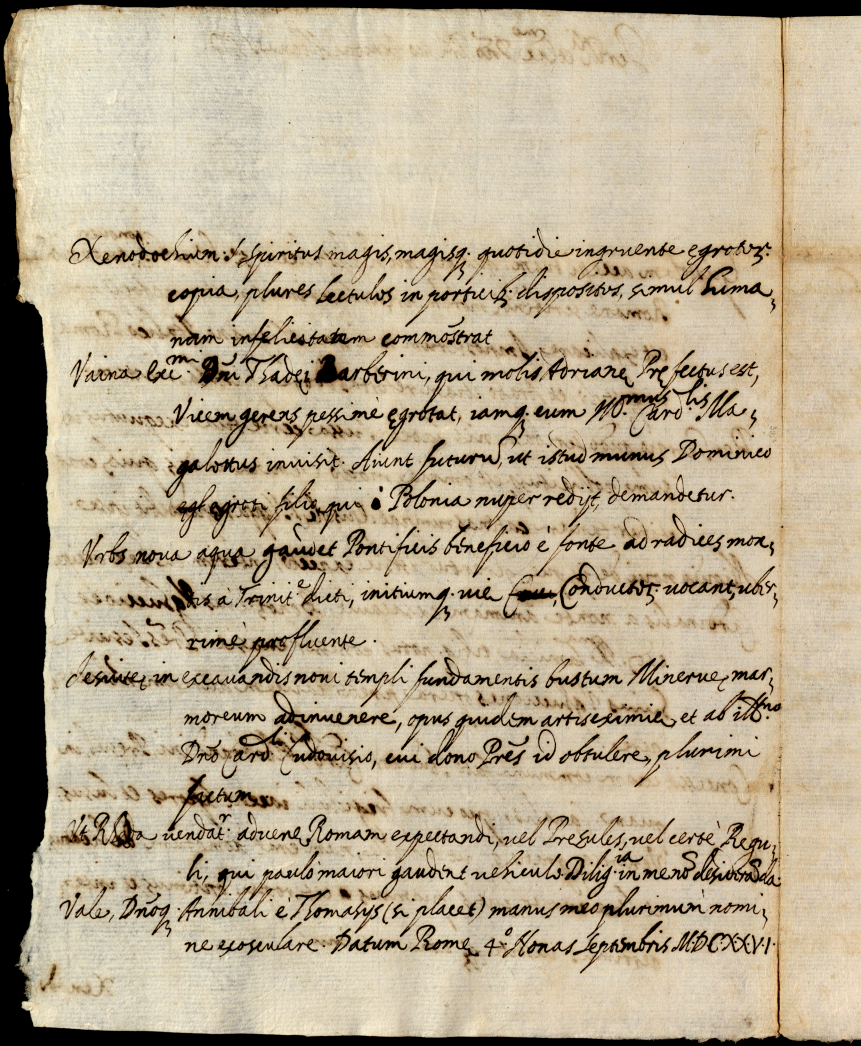 Xenodochium S. Spiritus magis, magisq; quotidie ingruente ęgrotor:
copia, plures lectulos in porticib; dispositos, simul huma,
nam infelicitatem commōstrat
Vaina Exc.mi Dñi Thadęi Barberini, qui molis Adrianę Pręfectus est,
Vicem gerens pessimè ęgrotat, iamq; eum Card.lis Ma,
galottus inuisit. Aiunt futurū, ut istud munus Dominico
ęgroti filio, qui è Polonia nuper redijt, demandetur.
Vrbs noua aqua gaudet Pontificis beneficio è fonte ad radices mon,
tis a Trinit.e dicti, initiumq; vię Conductor: uocant, uber,
rimè profluente.
Iesuitę in excauandis noui templi fundamentis bustum Mineruę mar,
moreum adinuenere, opus quidem artis eximię, et ab Ill.mo
Dño Card.li Ludouisio, cui dono Prēs id obtulere, plurimi
factum
Vt Rheda uendat.r aduenę Romam expectandi, uel Pręsules, uel certè Regu,
li, qui paulo maiori gaudent uehiculo. Dilig.ia in me nō desideranda
Vale, Dñoq; Annibali è Thomasijs (si placet) manus meo plurimum nomi,
ne exosculare. Datum Romę 4.o Nonas Septembris MDCXXVI.